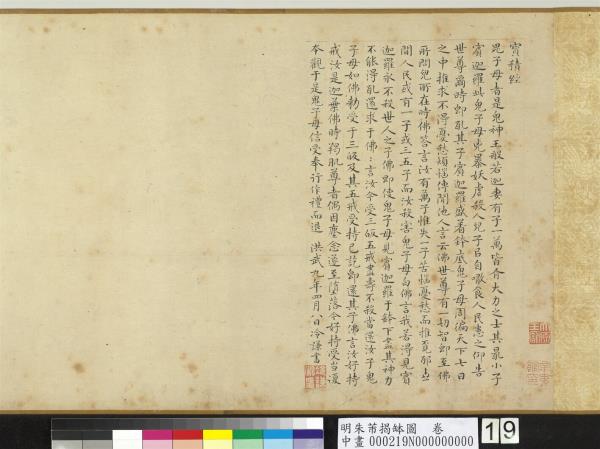 寶積經
鬼子母者是鬼神王般若迦妻有子一萬皆有大力之士其最小子
賓迦羅此鬼子母兇暴妖虐殺人兒子以自噉食人民患之仰告
世尊爾時即取其子賓迦羅盛著鉢底鬼子母周遍天下七日
之中推求不得憂愁煩惱傳聞他人言云佛世尊有一切智即至佛
所問兒所在時佛答言汝有萬子惟失一子苦惱憂愁而推覓耶世
間人民或有一子或三五子而汝殺害鬼子母白佛言我若得見賓
迦羅永不殺世人之子佛即使鬼子母見賓迦羅于鉢下盡其神力
不能得取還求于佛佛言汝今受三皈五戒盡壽不殺當還汝子鬼
子母如佛勅受于三皈及其五戒受持已訖即還其子佛言汝好持
戒汝是迦葉佛時羯肌
洪武九年四月八日冷謙書
明朱芾揭缽圖 卷
中畫 000219N000000000
19